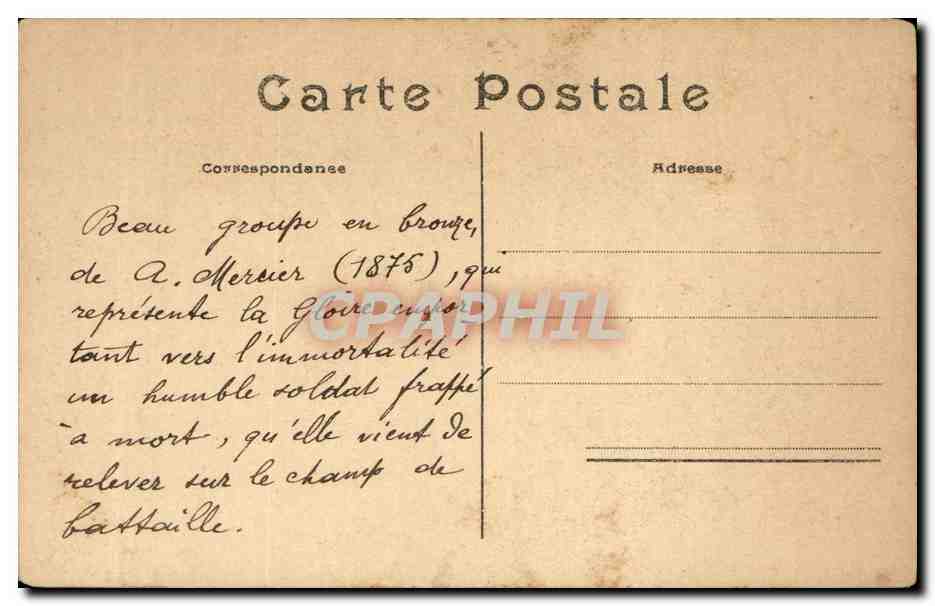 Carte Postale
Correspondance
Adresse
Beau groupe en bronze,
de A. Mercier (1875), qui
représente la Gloire empor
tant vers l'immortalité
un humble soldat frappé
à mort, qu'elle vient de
relever sur le champ de
battaille.
CPAPHIL